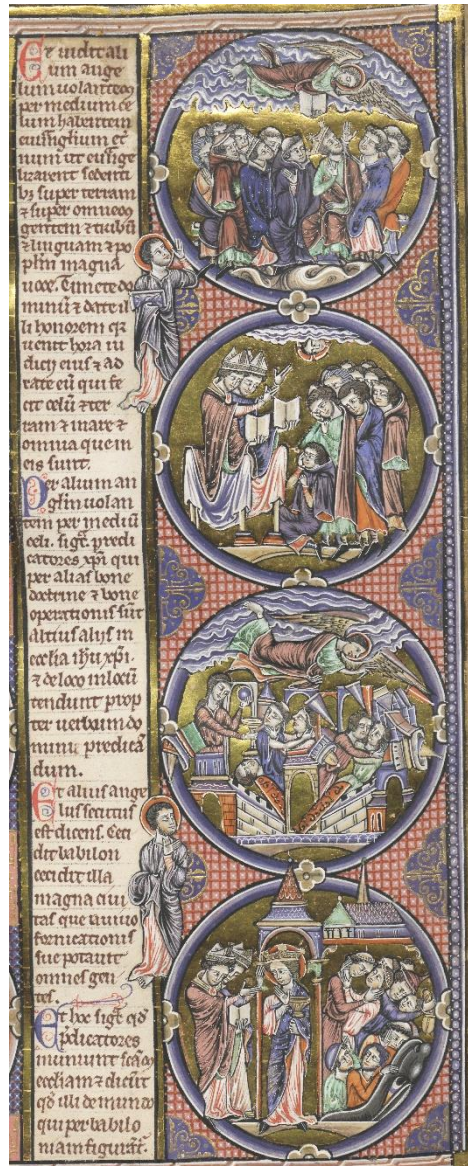 Et uidit ali
um ange
lum uolantem
per medium ce
lum habentem
euuangelium et
num ut euuange
lizaret sedenti
bus super terram
⁊ super omnem
gentem ⁊ tribum
⁊ linguam ⁊ po
plm magna
uoce. Timete do
minum ⁊ date il
li honorem qr
uenit hora iu
dicij eius ⁊ ad
rate eū qui fe
cit celū ⁊ ter
ram ⁊ mare ⁊
omnia que in
eis sunt.
Per alium an
glm uolan
tem per mediū
celi. sigt predi
catores xpi qui
per alias bone
doctrine ⁊ bone
operationis sūt
altius alijs in
ecclia ihu xpi.
⁊ de loco in locū
tendunt prop
ter uerbum do
mini predicā
dum.
Et alius ange
lus secutus
est dicens. Ceci
dit babilon
cecidit illa
magna ciui
tas que a uino
fornicationis
sue potauit
omnes gen
tes.
Et hoc sigt qd
p̄dicatores
muniunt scām
eccliam ⁊ dicūt
qd illi de mundo
qui per babilo
niam figurātr.